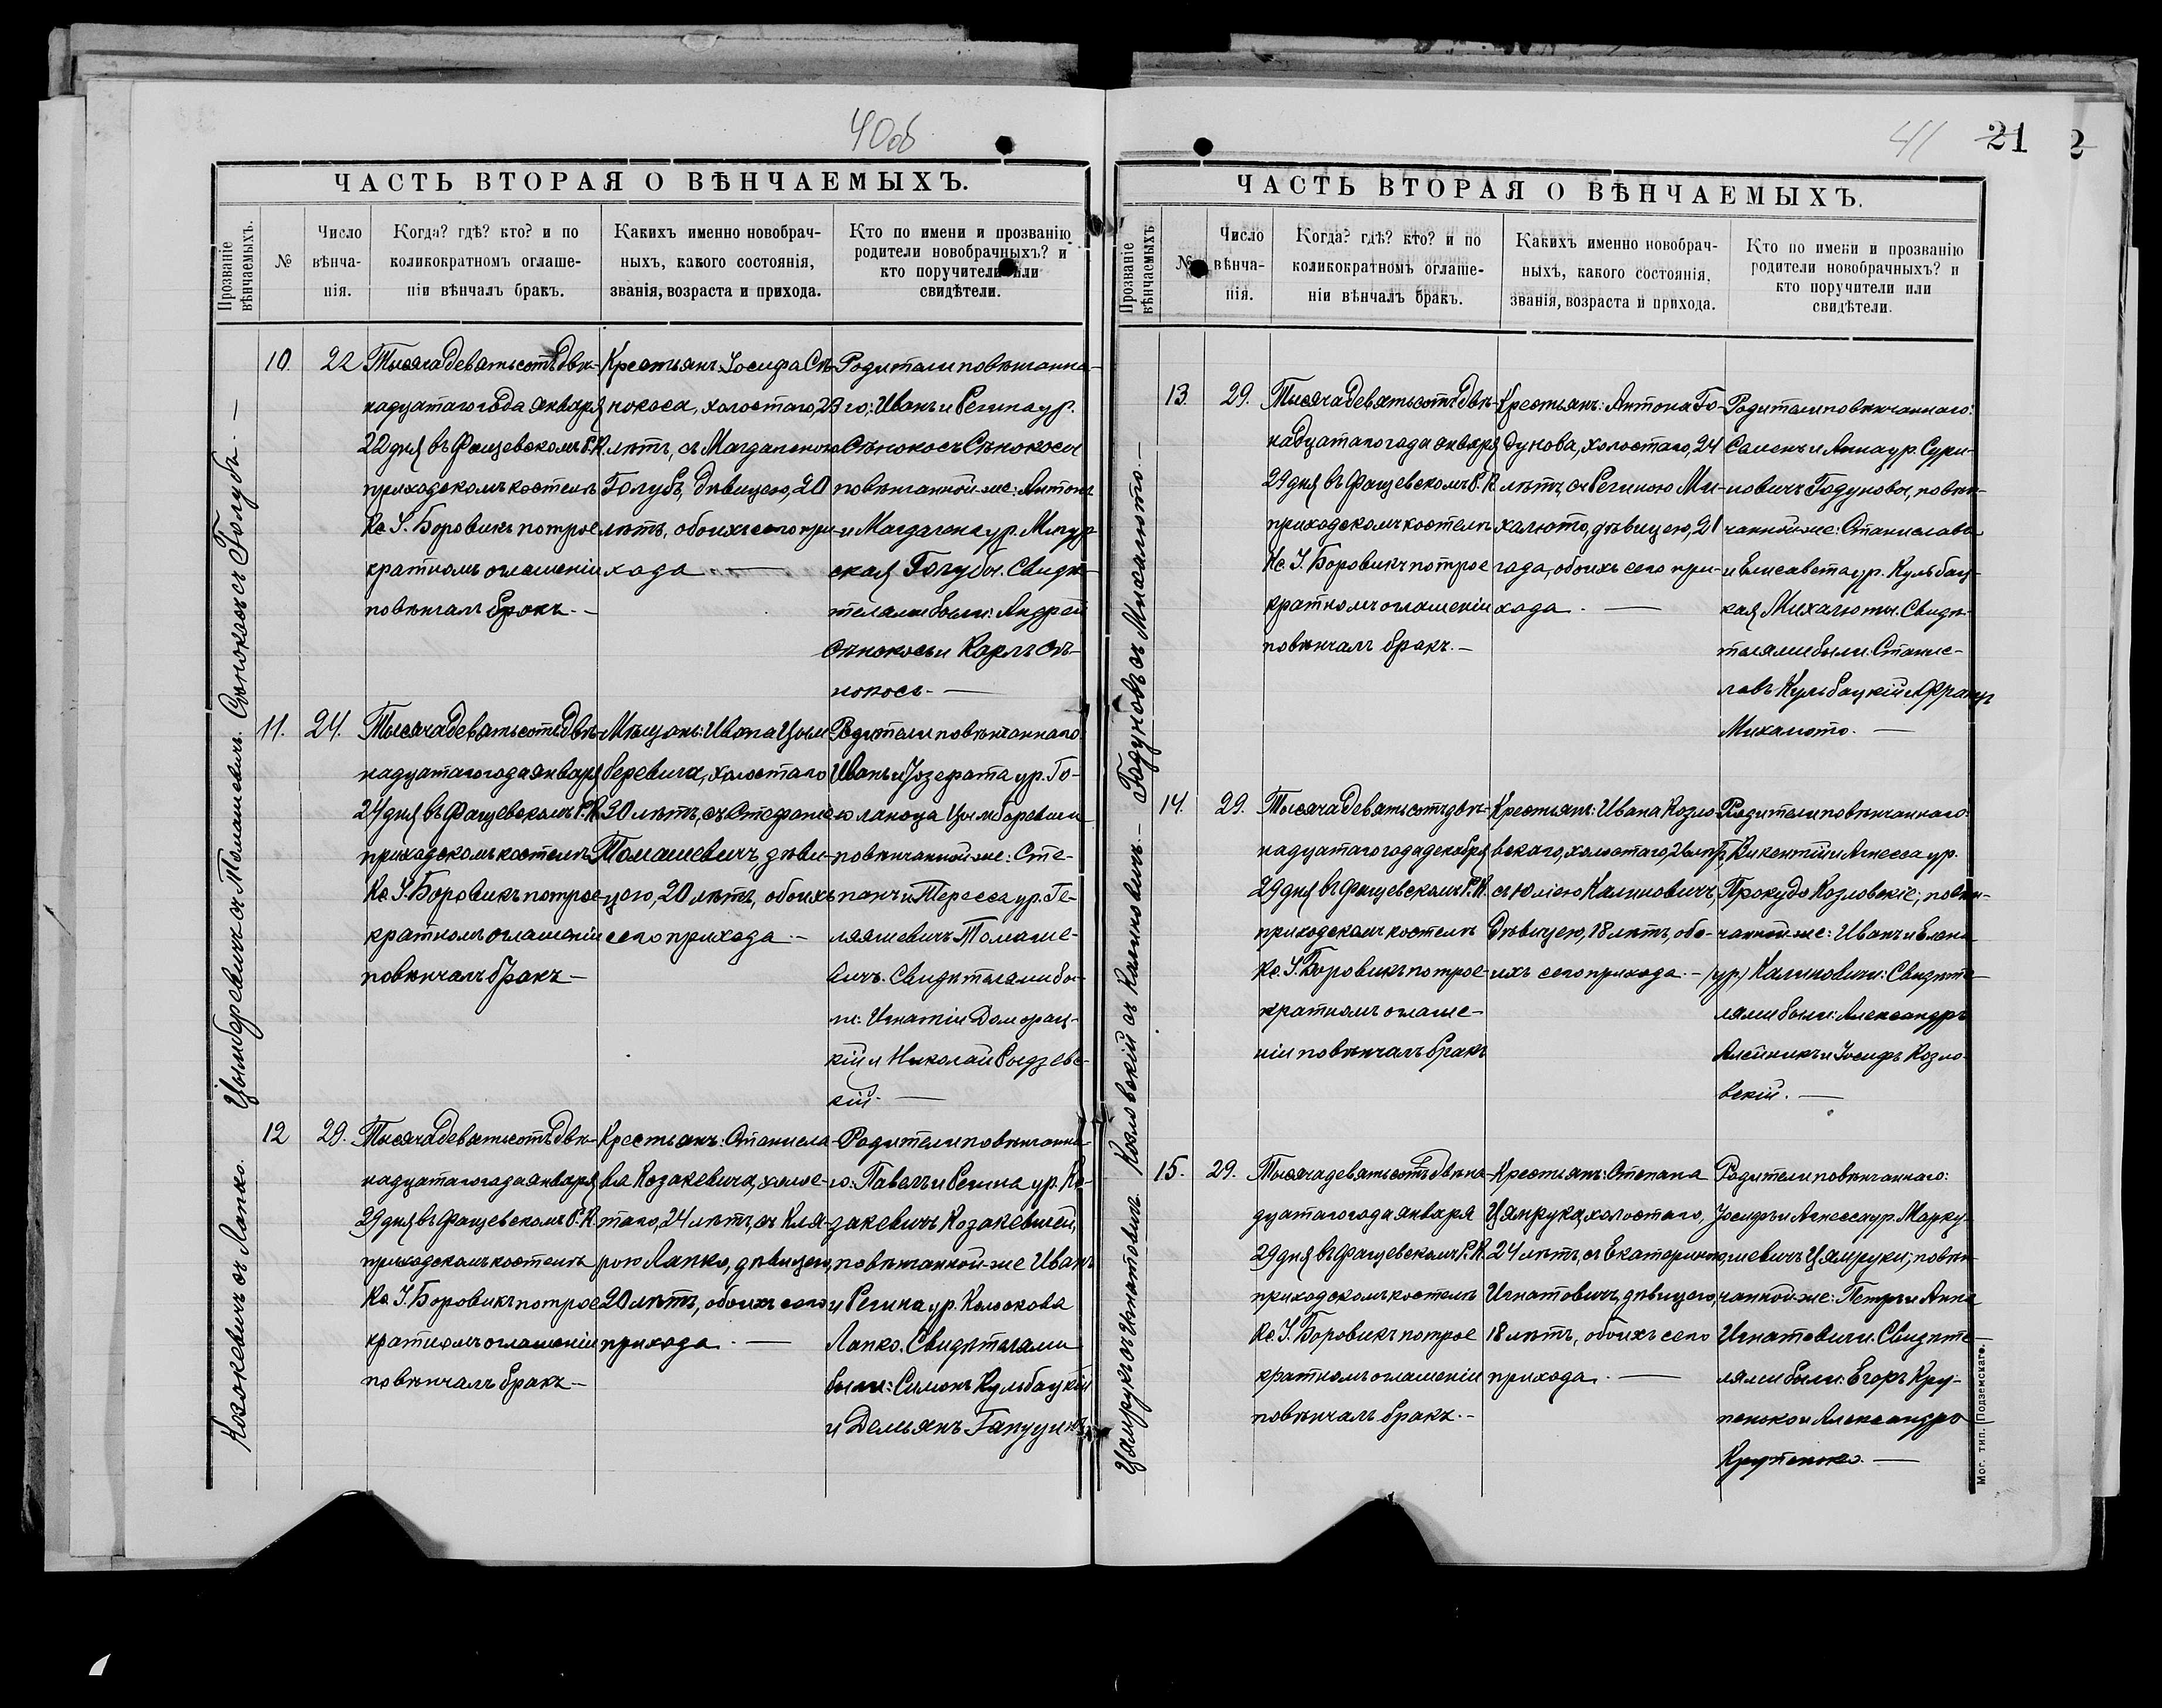 40об
ЧАСТЬ ВТОРАЯ О ВѢНЧАЕМЫХЪ.
Прозваніе вѣнчаемыхъ.
№
Число вѣнча-
нія.
Когда? гдѣ? кто? и по
коликократномъ оглаше-
ніи вѣнчалъ бракъ.
Какихъ именно новобрач-
ныхъ, какого состоянія,
званія, возраста и прихода.
Кто по имени и прозванію
родители новобрачныхъ? и
кто поручители или
свидѣтели.
Сѣнокосъ съ Голубъ. —
10
22
Тысяча девятьсотъ двѣ-
надцатаго года января
22 дня въ Фащевскомъ Р. К.
приходскомъ костелѣ
Кс. І. Боровикъ по трое
кратномъ оглашеніи
повѣнчалъ бракъ. —
Крестьянъ Іосифа Сѣ-
нокоса, холостаго, 23
лѣтъ, съ Магдаленою
Голубъ, дѣвицею, 20
лѣтъ, обоихъ сего при-
хода. —
Родители повѣнчанна-
го: Иванъ и Регина ур.
Сѣнокосъ Сѣнокосы
повѣнчанной-же: Антонъ
и Магдалена ур.
ская Голубы. Свидѣ-
телями были: Андрей
Сѣнокосъ и Карлъ Сѣ-
нокосъ. —
Цымборевичъ съ Томашевичъ.
11.
24.
Тысяча девятьсотъ двѣ-
надцатаго года января
24 дня въ Фащевскомъ Р. К.
приходскомъ костелѣ
Кс. І. Боровикъ по трое-
кратномъ оглашеніи
повѣнчалъ бракъ —
Мѣщанъ: Ивана Цым
беревича, холостаго
30 лѣтъ, съ Стефаніею
Томашевичъ, дѣви-
цею, 20 лѣтъ, обоихъ
сего прихода. —
Родители повѣнчаннаго:
Иванъ и Іозефата ур. Го-
Цымборевичи
повѣнчанной-же: Сте-
панъ и Тересса ур. Ге-
ляшевичъ Томаше-
вичъ. Свидѣтелями бы-
ли: Игнатій Доморац-
кій и Николай Рыдзевс-
кій. —
Козакевичъ съ Лапко.
12
29.
Тысяча девятьсотъ двѣ-
надцатаго года января
29 дня въ Фащевскомъ Р. К.
приходскомъ костелѣ
Кс. І. Боровикъ по трое
кратномъ оглашеніи
повѣнчалъ бракъ —
Крестьянъ: Станисла-
ва Козакевича, холос-
таго, 24 лѣтъ, съ Кля-
рою Лапко, дѣвицею,
20 лѣтъ, обоихъ сего
прихода. —
Родители повѣнчанна-
го: Павелъ и Регина ур. Ко-
закевичъ Козакевичи,
повѣнчанной-же Иванъ
и Регина ур. Колоскова
Лапко. Свидѣтелями
были: Симонъ Кульбацкій
и Демьянъ
41
21
2
ЧАСТЬ ВТОРАЯ О ВѢНЧАЕМЫХЪ.
Прозваніе вѣнчаемыхъ
№
Число вѣнча-
нія.
Когда? гдѣ? кто? и по
коликократномъ оглаше-
ніи вѣнчалъ бракъ.
Какихъ именно новобрач-
ныхъ, какого состоянія,
званія, возраста и прихода.
Кто по имени и прозванію
родители новобрачныхъ? и
кто поручители или
свидѣтели.
Годуновъ съ Михалюто. —
13.
29.
Тысяча девятьсотъ двѣ-
надцатаго года января
29 дня въ Фащевскомъ Р. К
приходскомъ костелѣ
Кс. І. Боровикъ по трое
кратномъ оглашеніи
повѣнчалъ бракъ. —
Крестьянъ: Антона Го-
дунова, холостаго, 24
лѣтъ, съ Региною Ми-
халюто, дѣвицею, 21
года, обоихъ сего при-
хода. —
Родители повѣнчаннаго:
Семенъ и Анна ур. Сури-
новичъ Годуновы, повѣн-
чанной-же: Станиславъ
и Елисавета ур. Кульбац-
кая Михалюты. Свидѣ-
телями были: Станис-
лавъ Кульбацкій и Францъ
Михалюто. —
Козловскій съ Калиновичъ. —
14.
29.
Тысяча девятьсотъ двѣ-
надцатаго года декабря
29 дня въ Фащевскомъ Р. К.
приходскомъ костелѣ
Кс. І. Боровикъ по трое-
кратномъ оглаше-
ніи повѣнчалъ бракъ
Крестьянъ: Ивана Козло-
вскаго, холостаго,
съ Юліею Калиновичъ,
дѣвицею, 18 лѣтъ, обо-
ихъ сего прихода. —
Родители повѣнчаннаго:
Викентій и Агнесса ур.
Прокудо Козловскіе, повѣн-
чанной-же: Иванъ и Елена
(ур) Калиновичи. Свидѣте-
лями были: Александръ
Алейникъ и Іосифъ Козло-
вскій. —
Цямрукъ съ Игнатовичъ
15.
29.
Тысяча девятьсотъ двѣна-
дцатаго года января
29 дня въ Фащевскомъ Р. К.
приходскомъ костелѣ
Кс. І. Боровикъ по трое
кратномъ оглашеніи
повѣнчалъ бракъ. —
Крестьянъ: Степана
Цямрука, холостаго,
24 лѣтъ, съ Екатериною
Игнатовичъ, дѣвицею,
18 лѣтъ, обоихъ сего
прихода. —
Родители повѣнчаннаго:
Іосифъ и Агнесса ур. Марку-
шевичъ Цямруки, повѣн-
чанной-же: Петръ и Анна
Игнатовичи. Свидѣте-
лями были: Егоръ Кру-
пенько и Александръ
Крупенько. —
Мог. тип. Подземскаго.